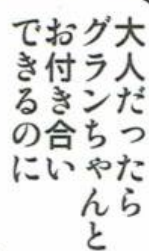 大人だったら
グランちゃんと
お付き合い
できるのに